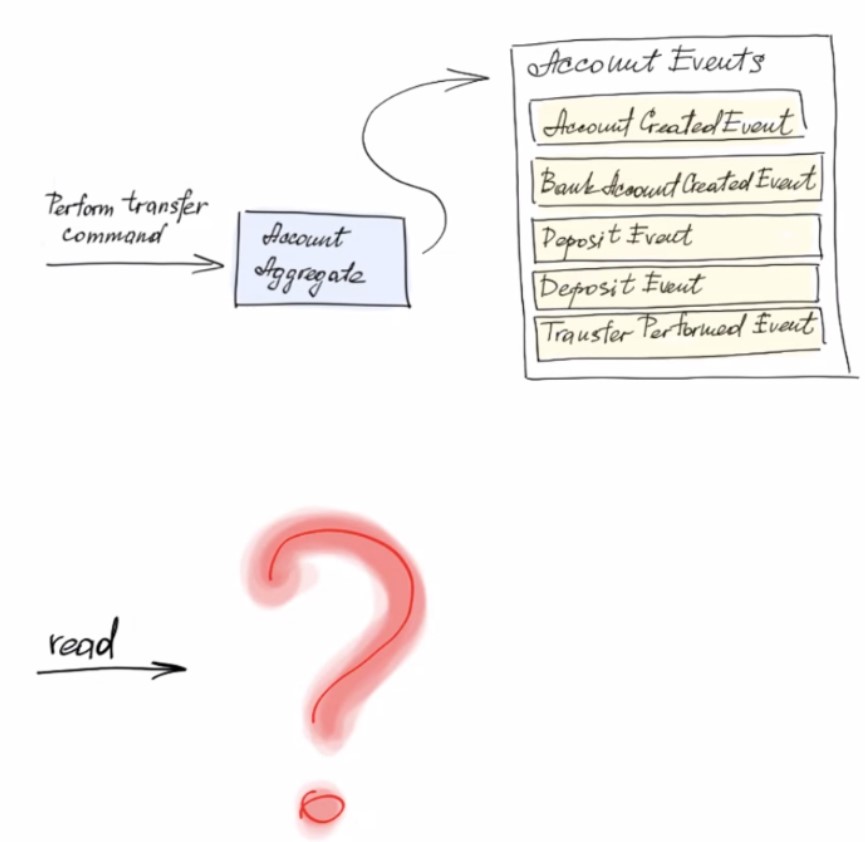 Perform transfer
command
Account
Aggregate
Account Events
Account Created Event
Bank Account Created Event
Deposit Event
Deposit Event
Transfer Performed Event
read
?